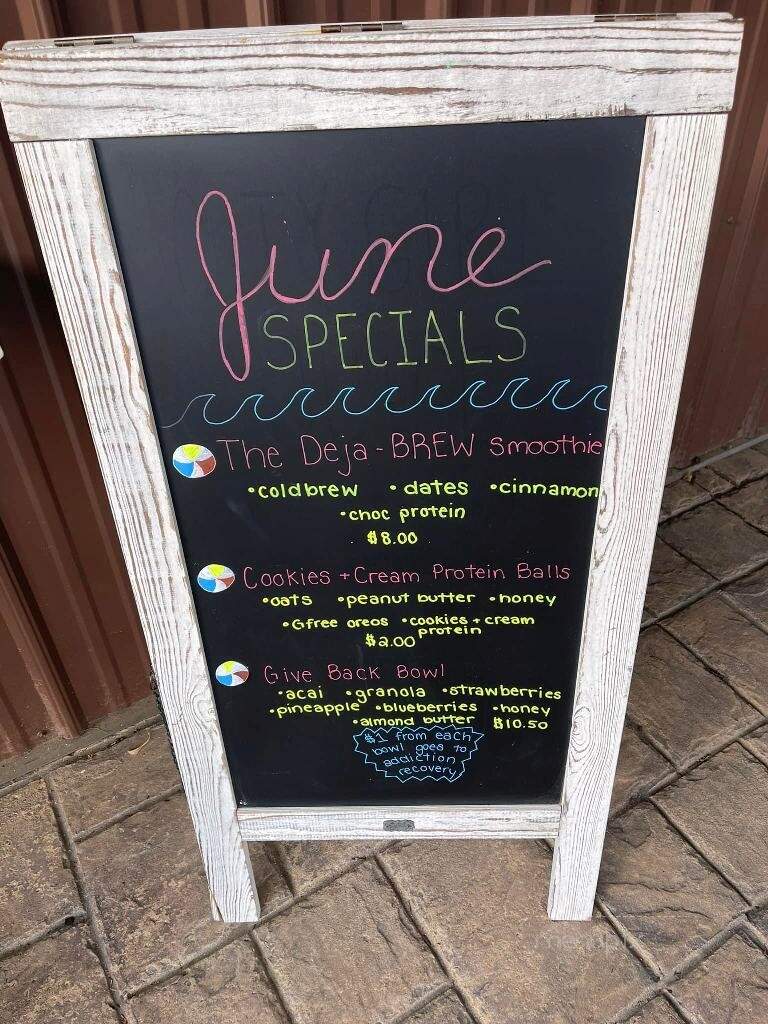 June
SPECIALS
The Deja-BREW Smoothie
•coldbrew •dates •cinnamon
•choc protein
$8.00
Cookies + Cream Protein Balls
•oats •peanut butter •honey
•Gfree oreos •cookies + cream
$2.00 protein
Give Back Bowl
•acai •granola •strawberries
•pineapple •blueberries •honey
•almond butter $10.50
$1 from each
bowl goes to
addiction
recovery